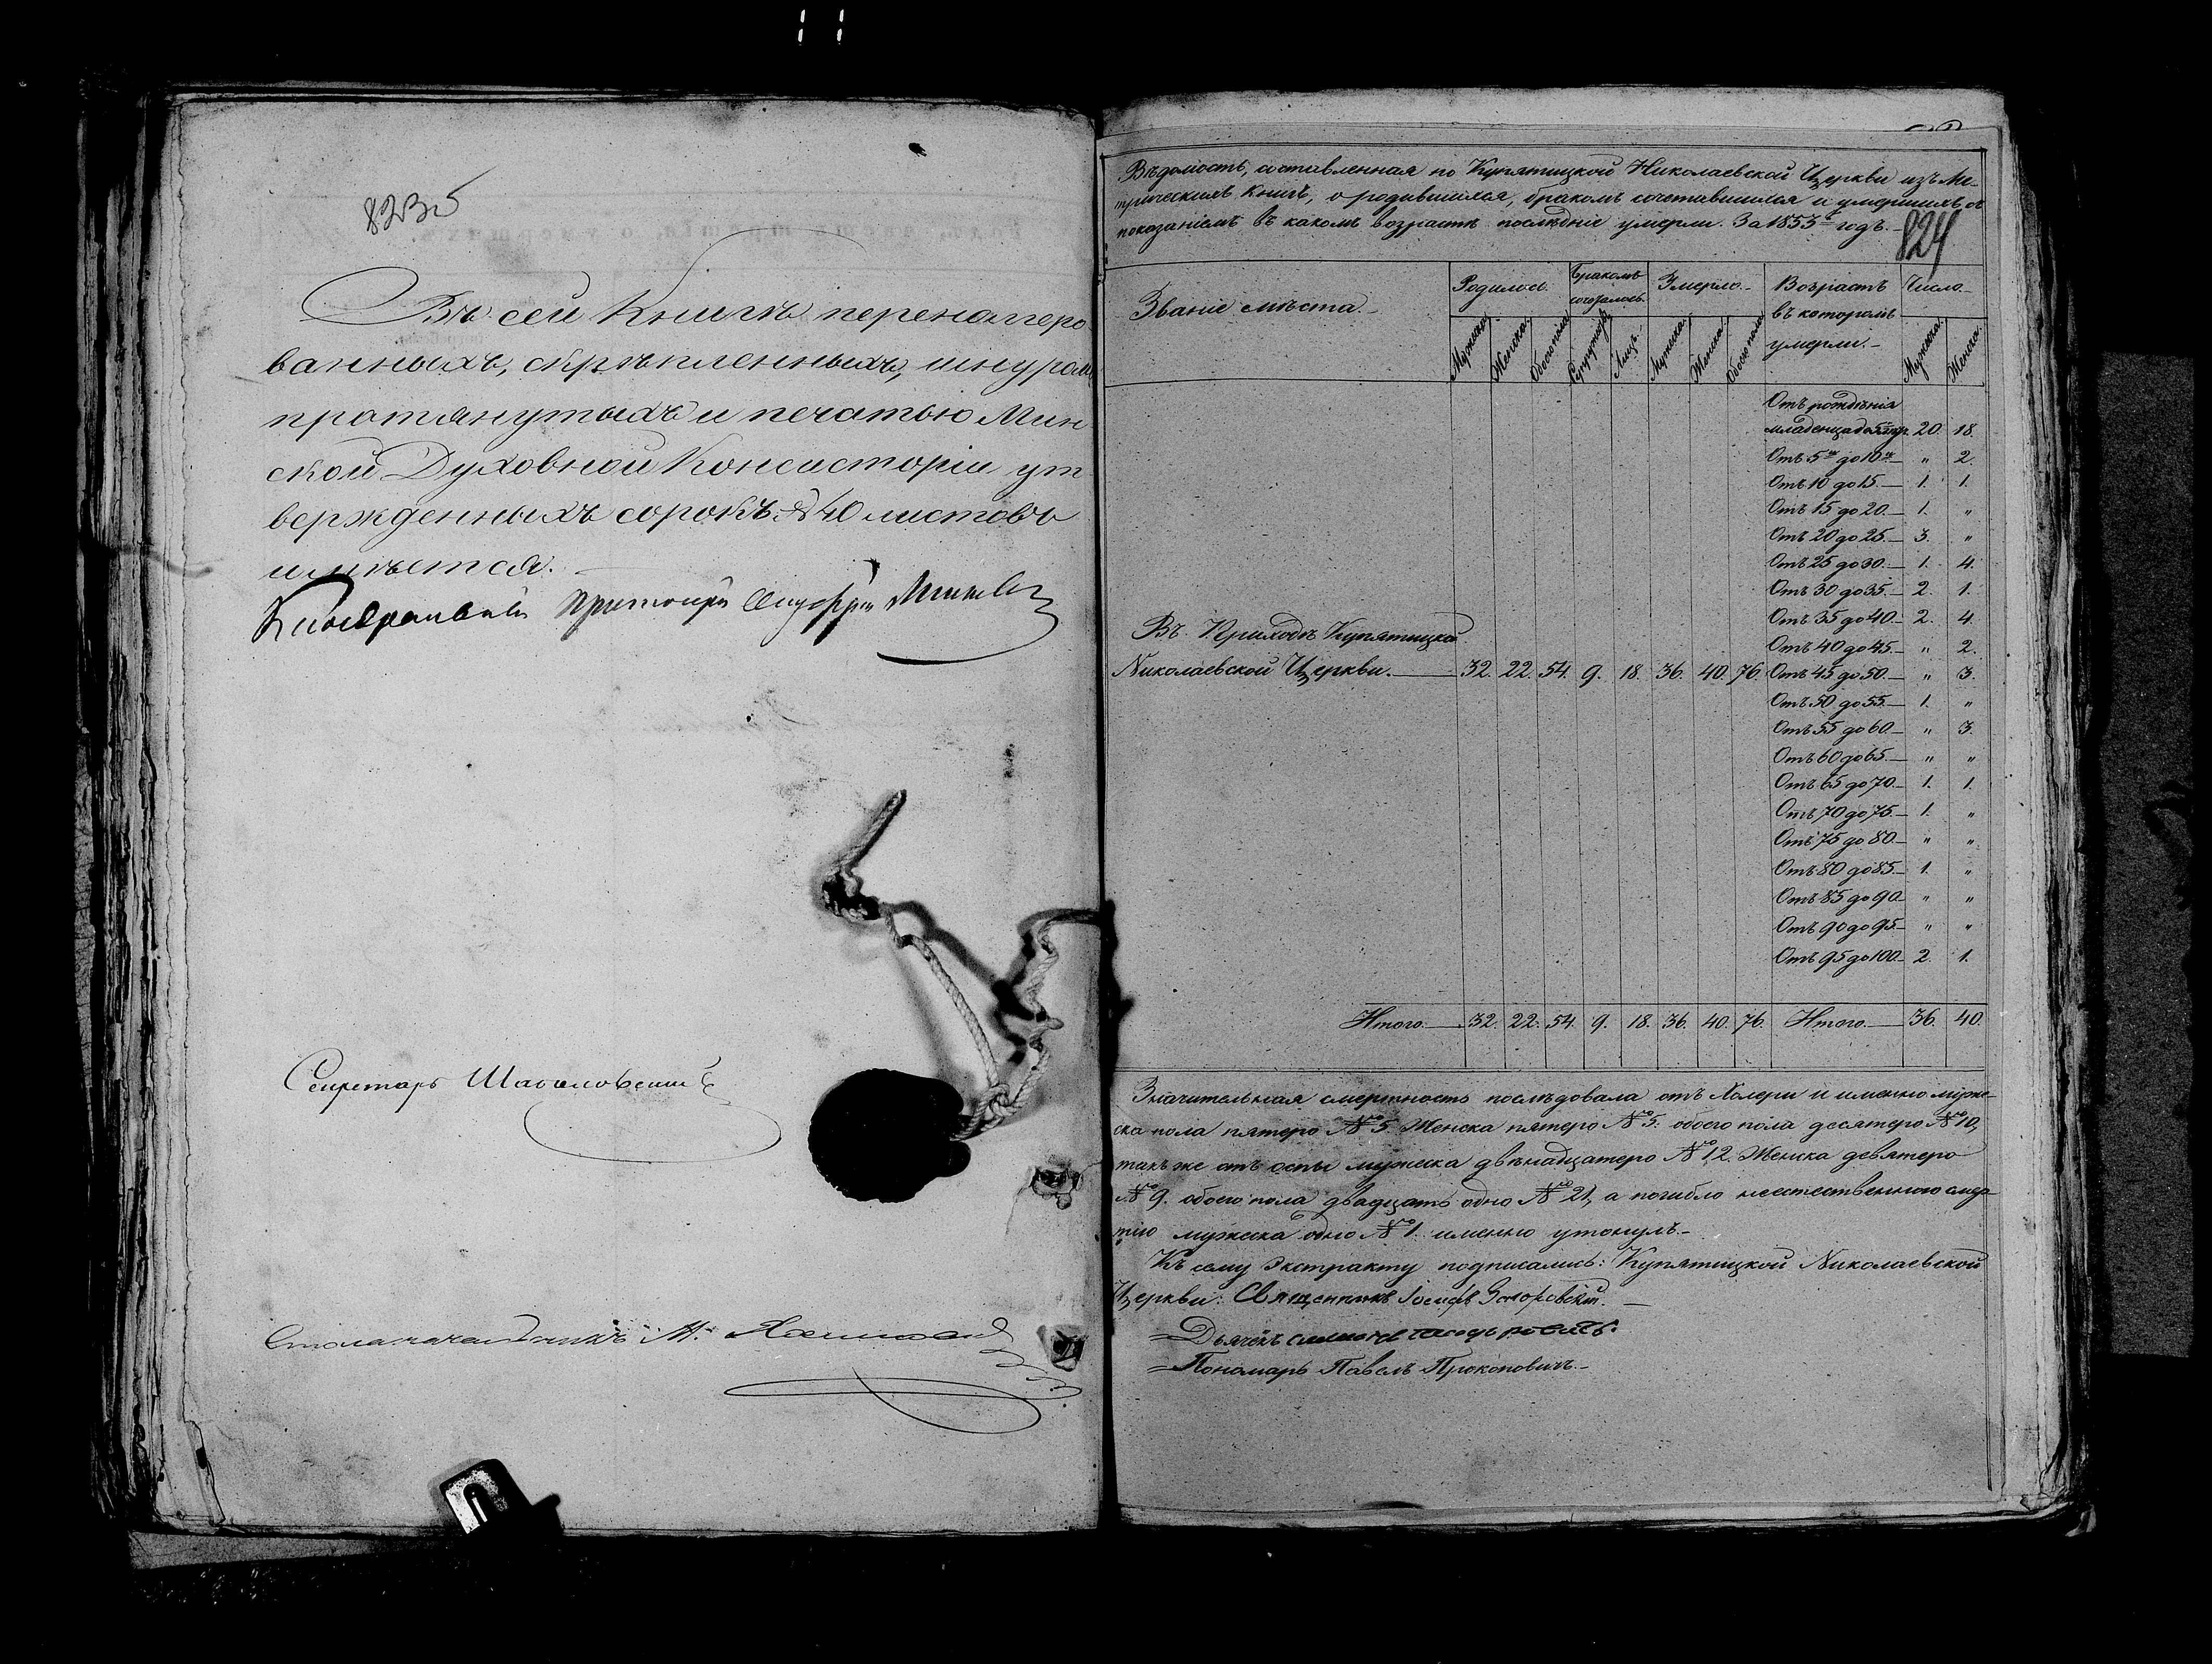 823 об
Въ сей Книгѣ перенумеро
ванныхъ, скрѣпленныхъ, шнуромъ
протянутыхъ и печатью Мин
ской Духовной Консисторіи ут
вержденныхъ сорокъ №40 листовъ
имѣется.
Протоіерей
Секретарь
Столоначальникъ
Вѣдомость, составленная по Купятицкой Николаевской Церкви изъ Ме-
трическихъ Книгъ, о родившихся, бракомъ сочетавшихся и умершихъ съ
показаніемъ въ какомъ возрастѣ послѣдніе умерли. За 1853й годъ.
824
Званіе мѣста. Родилось. Бракомъ сочеталось. Умерло. Возрастъ въ которомъ умерли. Число
Мужска. Женска. Обоего пола Лицъ. Мужска. Женска. Обоего пола Мужска. Женска.
Отъ рожденія
младенца до 5ти 20. 18.
Отъ 5ти до 10ти „ 2.
Отъ 10 до 15. 1. 1.
Отъ 15 до 20. 1. „
Отъ 20 до 25. 3. „
Отъ 25 до 30. 1. 4.
Отъ 30 до 35. 2. 1.
Отъ 35 до 40. 2. 4.
Отъ 40 до 45. „ 2.
Въ Приходѣ Купятицкой
Николаевской Церкви. 32. 22. 54. 9. 18. 36. 40. 76. Отъ 45 до 50. „ 3.
Отъ 50 до 55. 1. „
Отъ 55 до 60. „ 3.
Отъ 60 до 65. „ „
Отъ 65 до 70. 1. 1.
Отъ 70 до 75. 1. „
Отъ 75 до 80. „ „
Отъ 80 до 85. 1. „
Отъ 85 до 90 „ „
Отъ 90 до 95. „ „
Отъ 95 до 100. 2. 1.
Итого. 32. 22. 54. 9. 18. 36. 40. 76. Итого. 36. 40.
Значительная смертность послѣдовала отъ Холеры и именно муже-
ска пола пятеро №5. Женска пятеро №5. обоего пола десятеро №10,
такъ же отъ оспы мужеска двѣнадцатеро №12. Женска девятеро
№9. обоего пола двадцать одно №21, а погибло неестественною смер-
тію мужеска одно №1. именно утонулъ.
Къ сему Экстракту подписались: Купятицкой Николаевской
Церкви: Священникъ Іосифъ
Дьячекъ
Пономарь Павелъ Прокоповичъ.